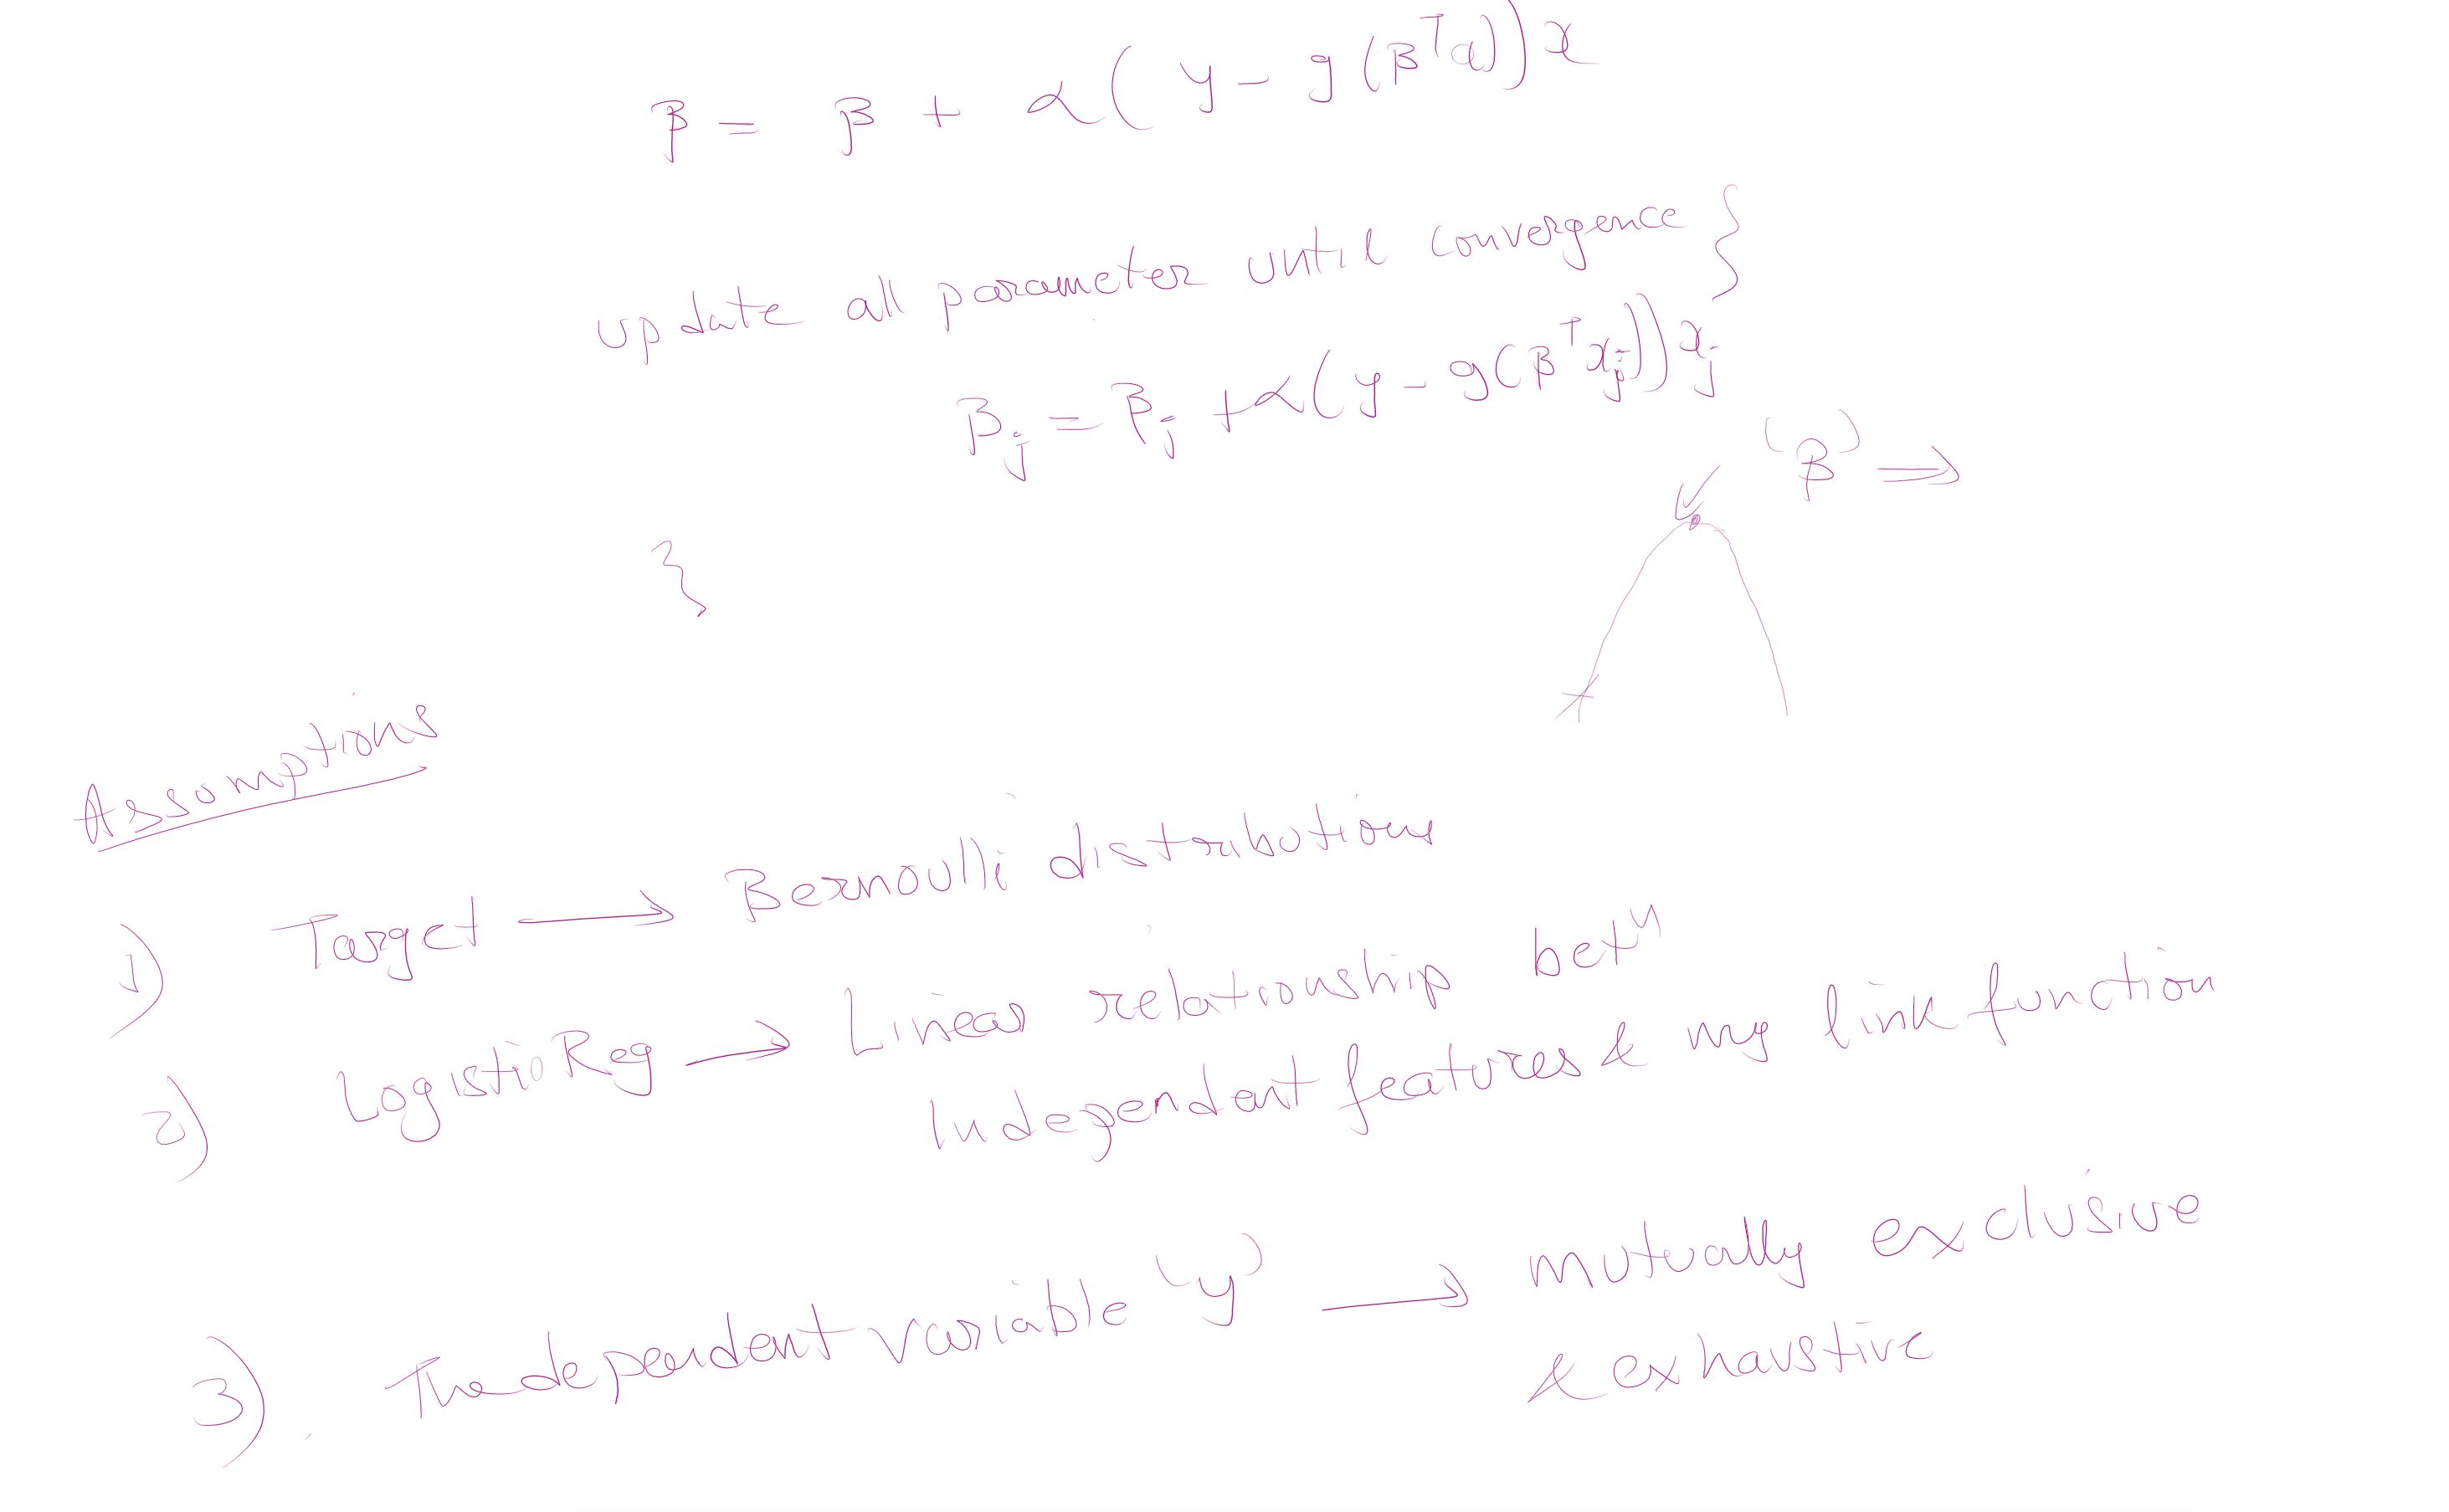 β = β + α(y - g(βᵀx))x
update all parameter until convergence }
βj = βj + α(y - g(βᵀxj))xj
(β) →
}
Assumptions
1) Target → Bernoulli distribution
2) Logistic Reg → Linear relationship betⁿ
Independant features & my link function
3) The dependant variable (y) → mutually exclusive
& exhaustive